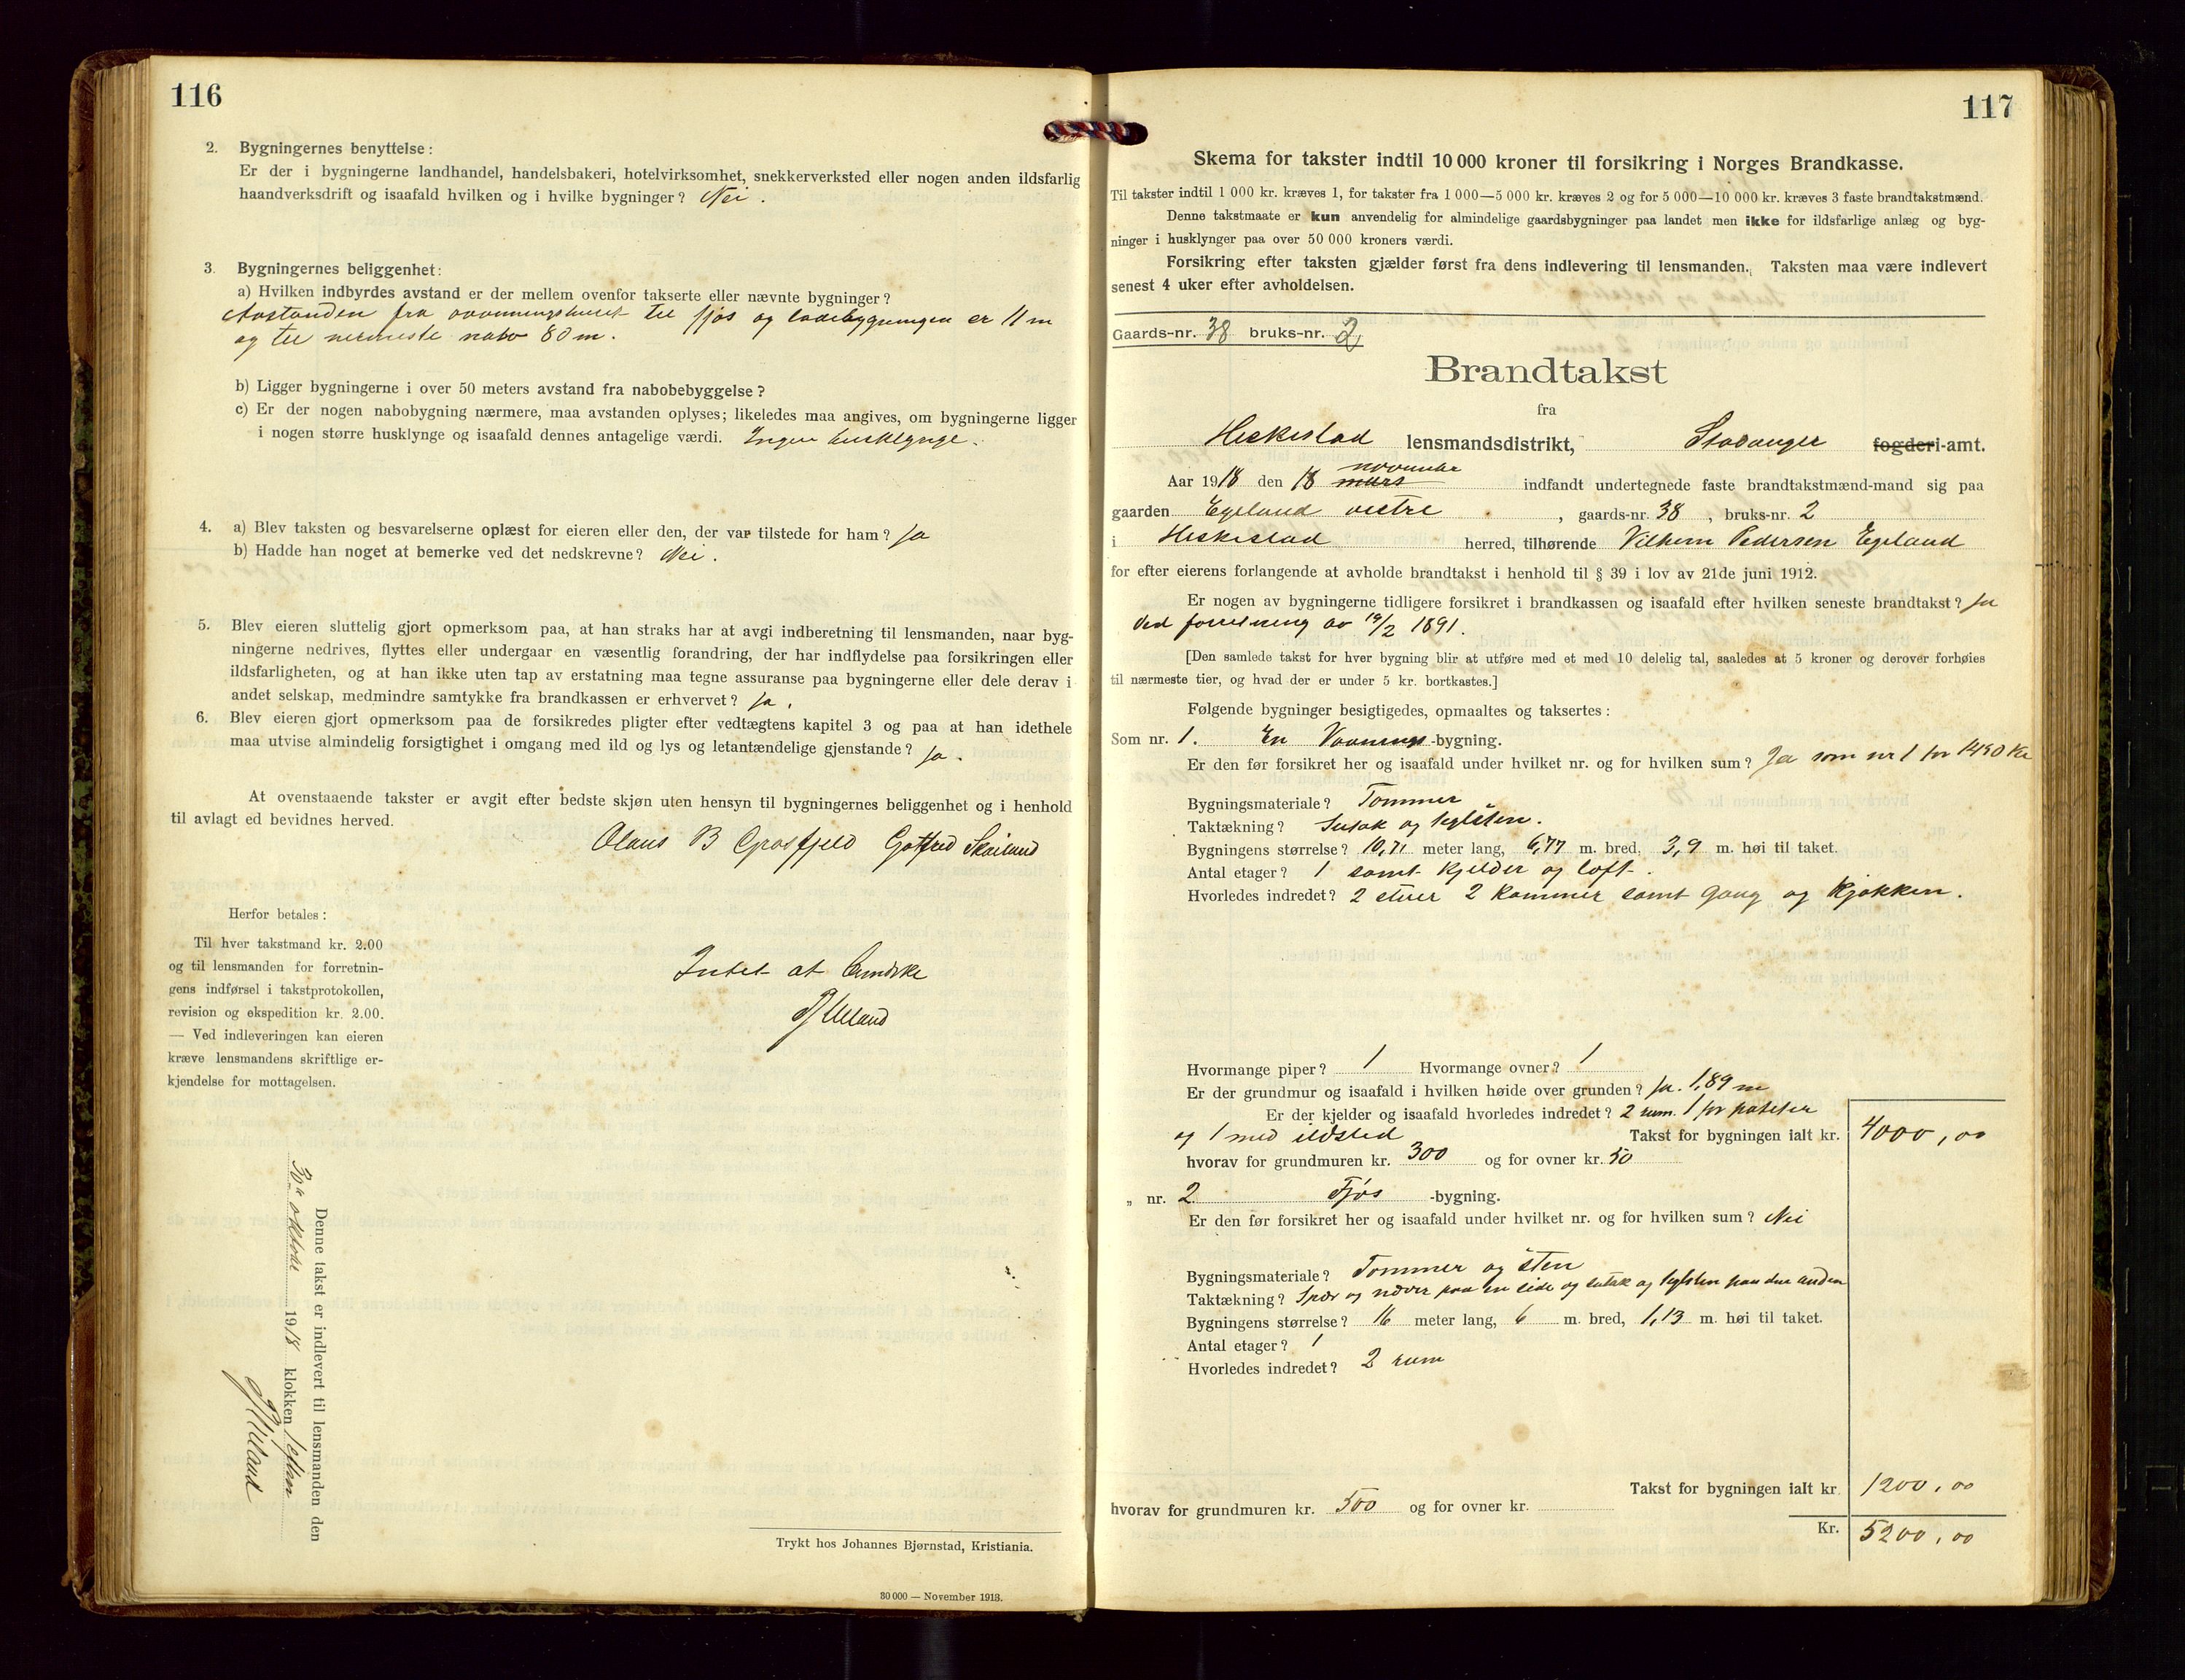 116
2. Bygningernes benyttelse:
Er der i bygningerne landhandel, handelsbakeri, hotelvirksomhet, snekkerverksted eller nogen anden ildsfarlig
haandverksdrift og isaafald hvilken og i hvilke bygninger? Nei.
3. Bygningernes beliggenhet:
a) Hvilken indbyrdes avstand er der mellem ovenfor takserte eller nævnte bygninger?
Avstanden fra vaaningshuset til fjøs og ladebygningen er 11 m
og til nermeste nabo 80 m.
b) Ligger bygningerne i over 50 meters avstand fra nabobebyggelse?
c) Er der nogen nabobygning nærmere, maa avstanden oplyses; likeledes maa angives, om bygningerne ligger
i nogen større husklynge og isaafald dennes antagelige værdi. Ingen husklynge.
4. a) Blev taksten og besvarelserne oplæst for eieren eller den, der var tilstede for ham? Ja
b) Hadde han noget at bemerke ved det nedskrevne? Nei.
5. Blev eieren sluttelig gjort opmerksom paa, at han straks har at avgi indberetning til lensmanden, naar byg-
ningerne nedrives, flyttes eller undergaar en væsentlig forandring, der har indflydelse paa forsikringen eller
ildsfarligheten, og at han ikke uten tap av erstatning maa tegne assuranse paa bygningerne eller dele derav i
andet selskap, medmindre samtykke fra brandkassen er erhvervet? Ja.
6. Blev eieren gjort opmerksom paa de forsikredes pligter efter vedtægtens kapitel 3 og paa at han idethele
maa utvise almindelig forsigtighet i omgang med ild og lys og letantændelige gjenstande? Ja.
At ovenstaaende takster er avgit efter bedste skjøn uten hensyn til bygningernes beliggenhet og i henhold
til avlagt ed bevidnes herved.
Olaus B Grosfjeld Gotfred Skailand
Herfor betales:
Til hver takstmand kr. 2.00
og til lensmanden for forretnin-
gens indførsel i takstprotokollen,
revision og ekspedition kr. 2.00.
— Ved indleveringen kan eieren
kræve lensmandens skriftlige er-
kjendelse for mottagelsen.
Intet at
Denne takst er indlevert til lensmanden den
30te 1918 klokken
Trykt hos Johannes Bjørnstad, Kristiania.
30 000 — November 1913.
117
Skema for takster indtil 10 000 kroner til forsikring i Norges Brandkasse.
Til takster indtil 1 000 kr. kræves 1, for takster fra 1 000—5 000 kr. kræves 2 og for 5 000—10 000 kr. kræves 3 faste brandtakstmænd.
Denne takstmaate er kun anvendelig for almindelige gaardsbygninger paa landet men ikke for ildsfarlige anlæg og byg-
ninger i husklynger paa over 50 000 kroners værdi.
Forsikring efter taksten gjælder først fra dens indlevering til lensmanden. Taksten maa være indlevert
senest 4 uker efter avholdelsen.
Gaards-nr. 38 bruks-nr. 2
Brandtakst
fra
Heskestad lensmandsdistrikt, Stavanger fogderi-amt.
november
Aar 1918 den 18 mars indfandt undertegnede faste brandtakstmænd-mand sig paa
gaarden Egeland vestre, gaards-nr. 38, bruks-nr. 2
i Heskestad herred, tilhørende Vilhem Pedersen Egeland
for efter eierens forlangende at avholde brandtakst i henhold til § 39 i lov av 21de juni 1912.
Er nogen av bygningerne tidligere forsikret i brandkassen og isaafald efter hvilken seneste brandtakst? Ja
ved forretning av 19/2 1891.
[Den samlede takst for hver bygning blir at utføre med et med 10 delelig tal, saaledes at 5 kroner og derover forhøies
til nærmeste tier, og hvad der er under 5 kr. bortkastes.]
Følgende bygninger besigtigedes, opmaaltes og taksertes:
Som nr. 1. En Vaanings-bygning.
Er den før forsikret her og isaafald under hvilket nr. og for hvilken sum? Ja som nr 1 for 1490 Kr
Bygningsmateriale? Tømmer
Taktækning? Sutak og teglsten.
Bygningens størrelse? 10,71 meter lang, 6,77 m. bred, 3,9 m. høi til taket.
Antal etager? 1 samt kjelder og loft.
Hvorledes indredet? 2 stuer 2 kammer samt gang og kjøkken.
Hvormange piper? 1 Hvormange ovner? 1
Er der grundmur og isaafald i hvilken høide over grunden? Ja. 1,89 m
Er der kjelder og isaafald hvorledes indredet? 2 rum. 1 for poteter
og 1 med ildsted Takst for bygningen ialt kr. 4000,00
hvorav for grundmuren kr. 300 og for ovner kr. 50
„ nr. 2 Fjøs -bygning.
Er den før forsikret her og isaafald under hvilket nr. og for hvilken sum? Nei
Bygningsmateriale? Tømmer og sten
Taktækning? Spær og næver paa en side og sutak og teglsten paa den anden
Bygningens størrelse? 16 meter lang, 6 m. bred, 1,13 m. høi til taket.
Antal etager? 1
Hvorledes indredet? 2 rum
Takst for bygningen ialt kr. 1200,00
hvorav for grundmuren kr. 500 og for ovner kr.
Kr. 5200,00